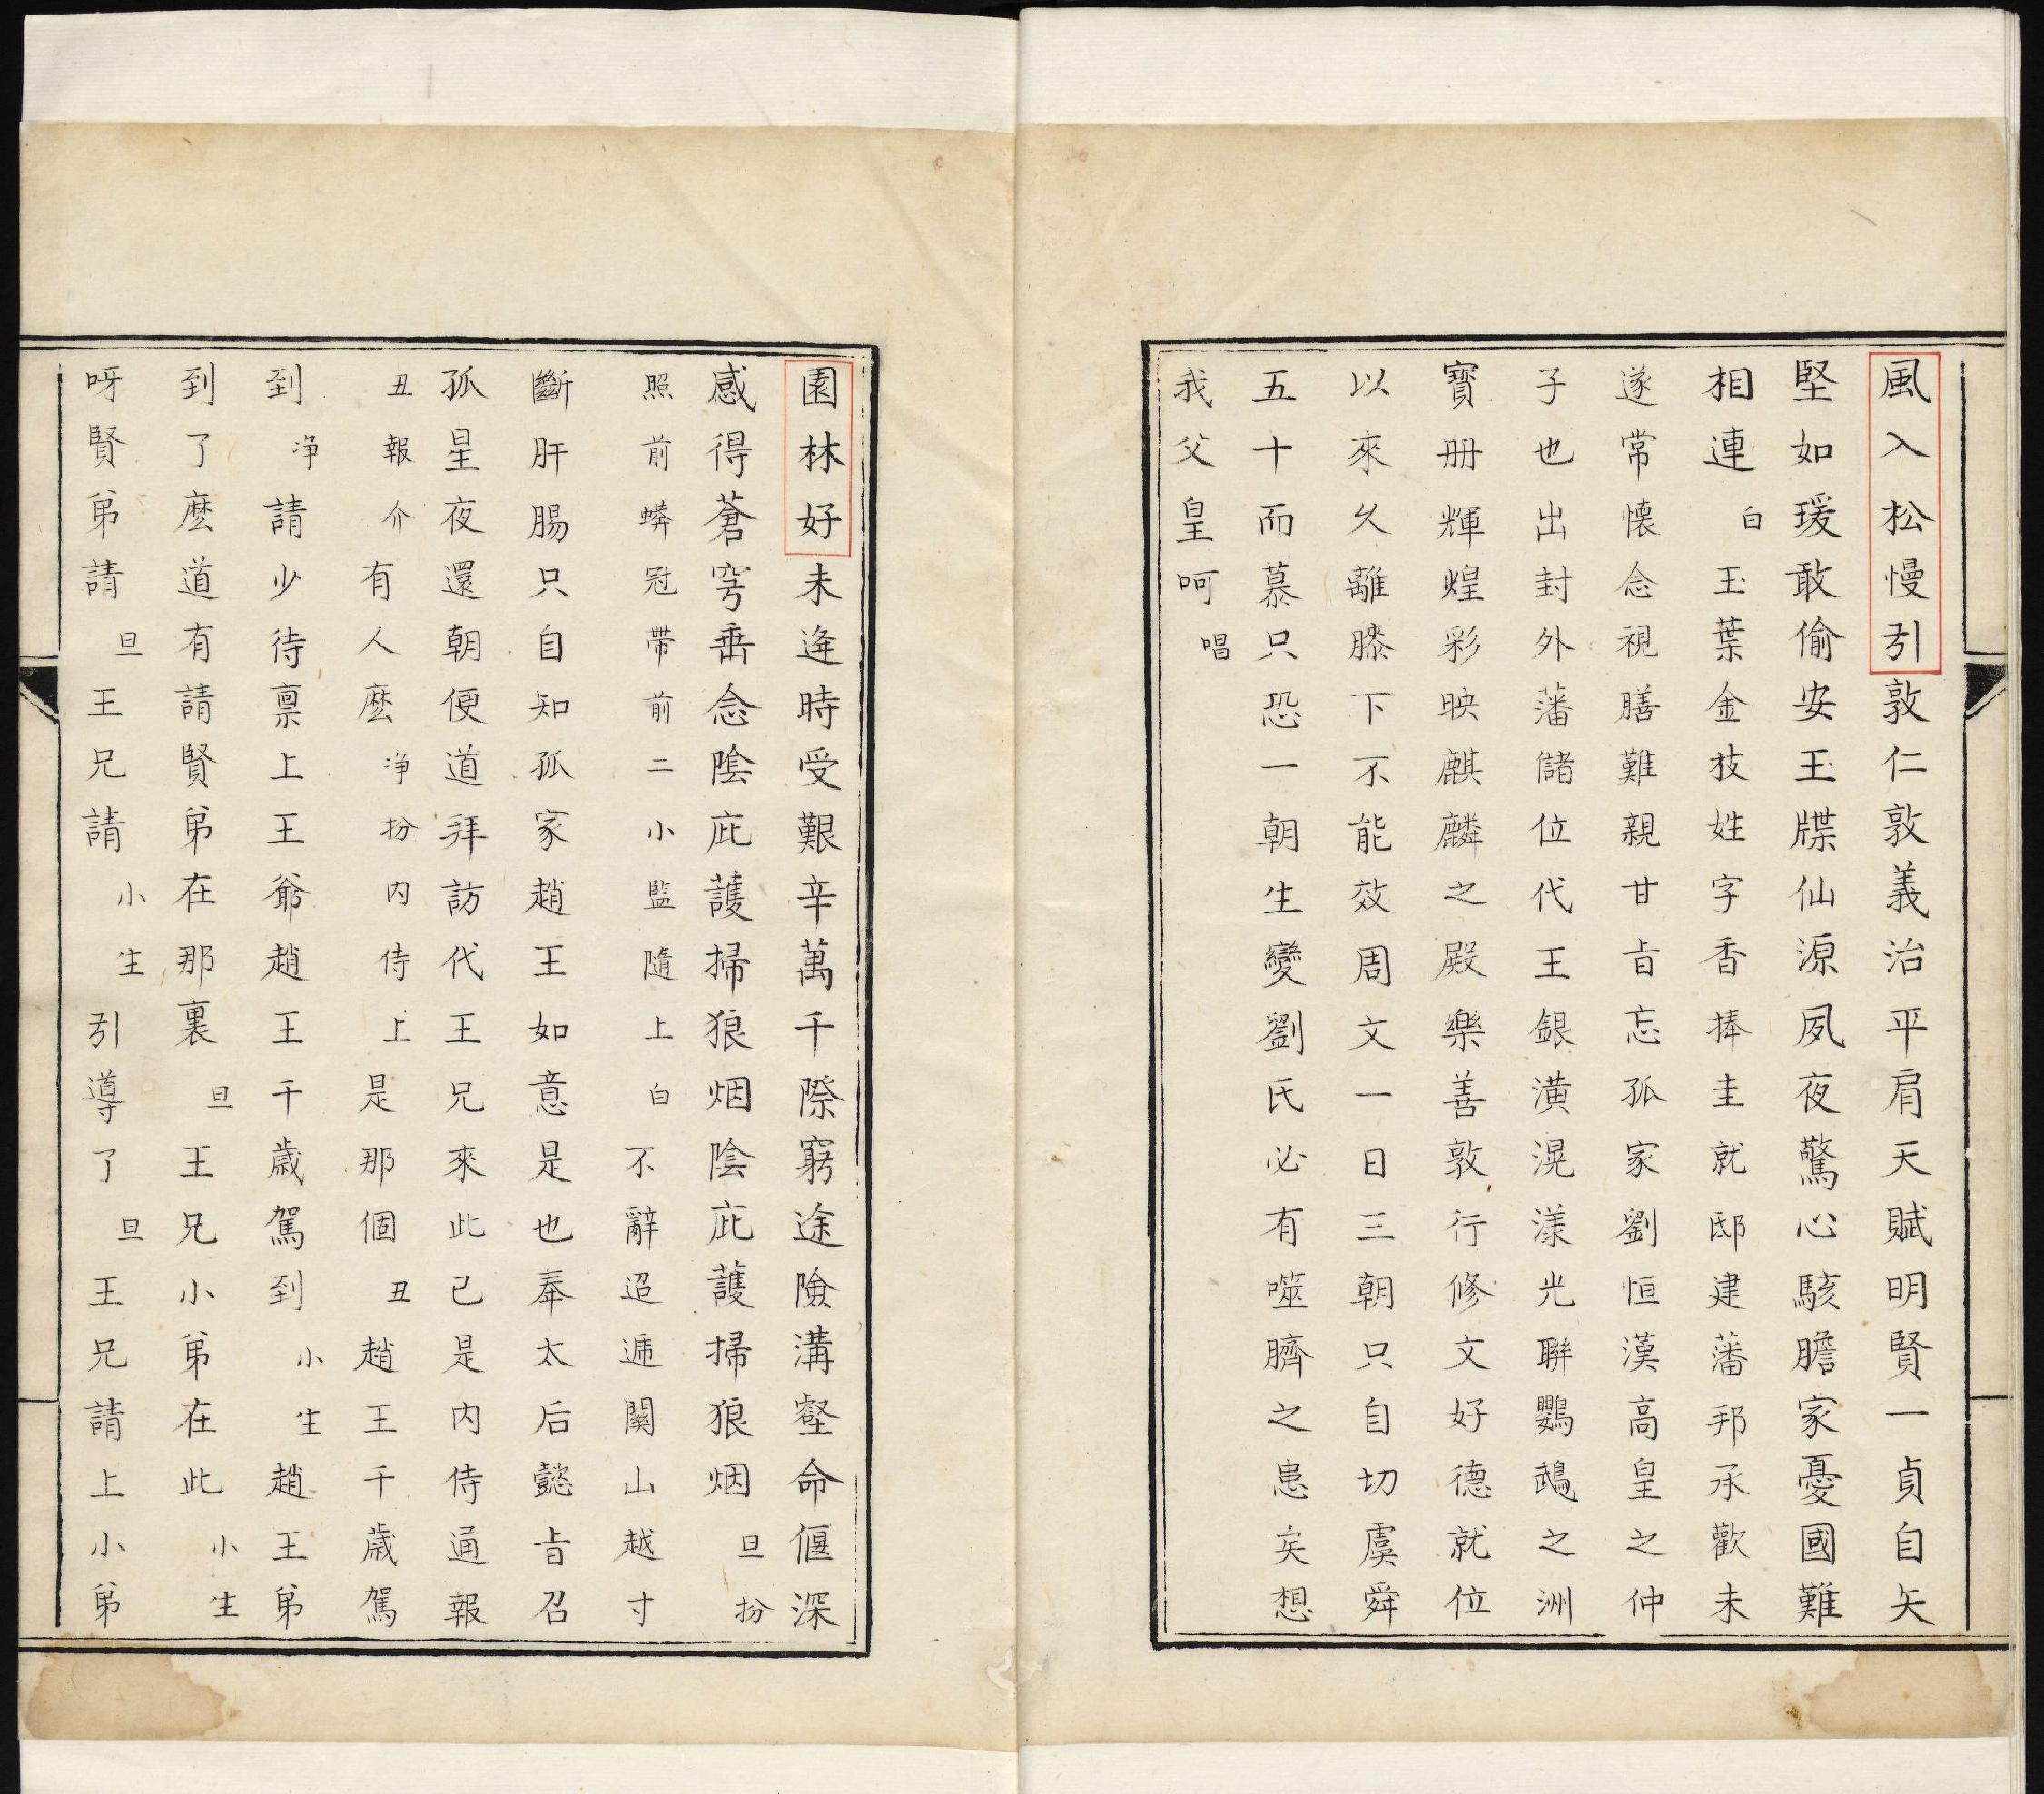 風入松慢引敦仁敦義治平肩天賦明賢一貞自矢
堅如瑗敢偷安玉牒仙源夙夜驚心駭膽家憂國難
相連白玉葉金枝姓字香捧圭就邸建藩邦承歡未
遂常懐念視膳難親甘㫖忘孤家劉恒漢高皇之仲
子也出封外藩儲位代王銀潢滉漾光聯鸚鵡之洲
寳册輝煌彩映麒麟之殿樂善敦行修文好德就位
以來久離膝下不能效周文一日三朝只自切虞舜
五十而慕只恐一朝生變劉氏必有噬臍之患矣想
我父皇呵唱
園林好未逢時受艱辛萬千際窮途險溝壑命偃深
感得蒼穹垂念陰庇護掃狼烟陰庇護掃狼烟旦扮
照前蟒冠帶前二小監隨上白不辭迢遞關山越寸
斷肝腸只自知孤家趙王如意是也奉太后懿㫖召
孤星夜還朝便道拜訪代王兄來此已是内侍通報
丑報介有人麽净扮内侍上是那個丑趙王千歲駕
到净請少待禀上王爺趙王千歲駕到小生趙王弟
到了麽道有請賢弟在那裏旦王兄小弟在此小生
呀賢弟請旦王兄請小生引導了旦王兄請上小弟